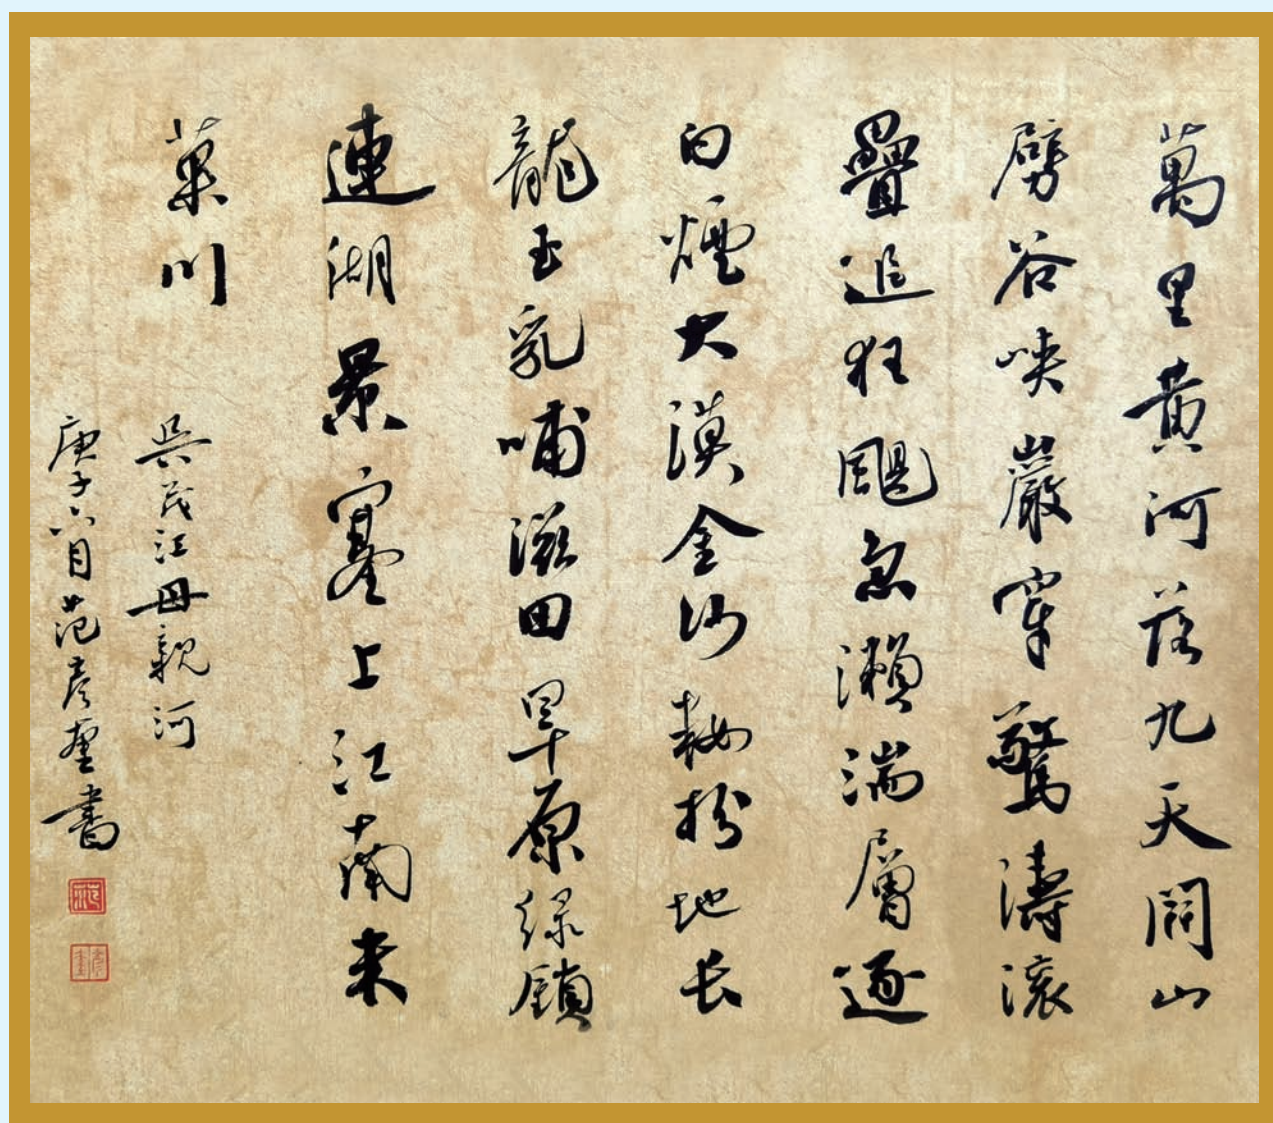 萬里黄河落九天闢山
劈谷峡巖穿驚濤滚
疊追狂颶急瀨湍層逐
白煙大漠金沙扮地长
龍玉乳哺滋田旱原緑鎖
連湖景塞上江南来
菓川
吴茂江母親河
庚子六月范彦奎書